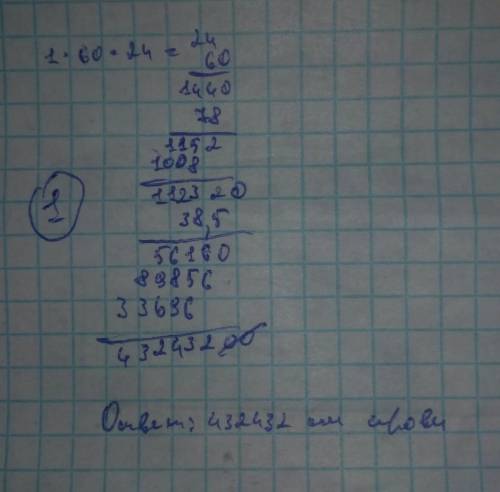 1 · 60 · 24 =
24
60
1440
78
1152
1008
112320
38,5
56160
89856
33696
43243200
1
Ответ: 432432 мл крови